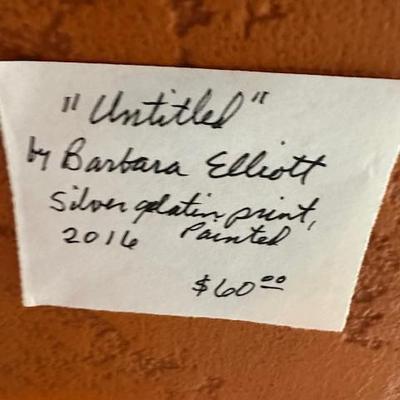 "Untitled"
by Barbara Elliott
Silver gelatin print,
2016 Painted
$60.00